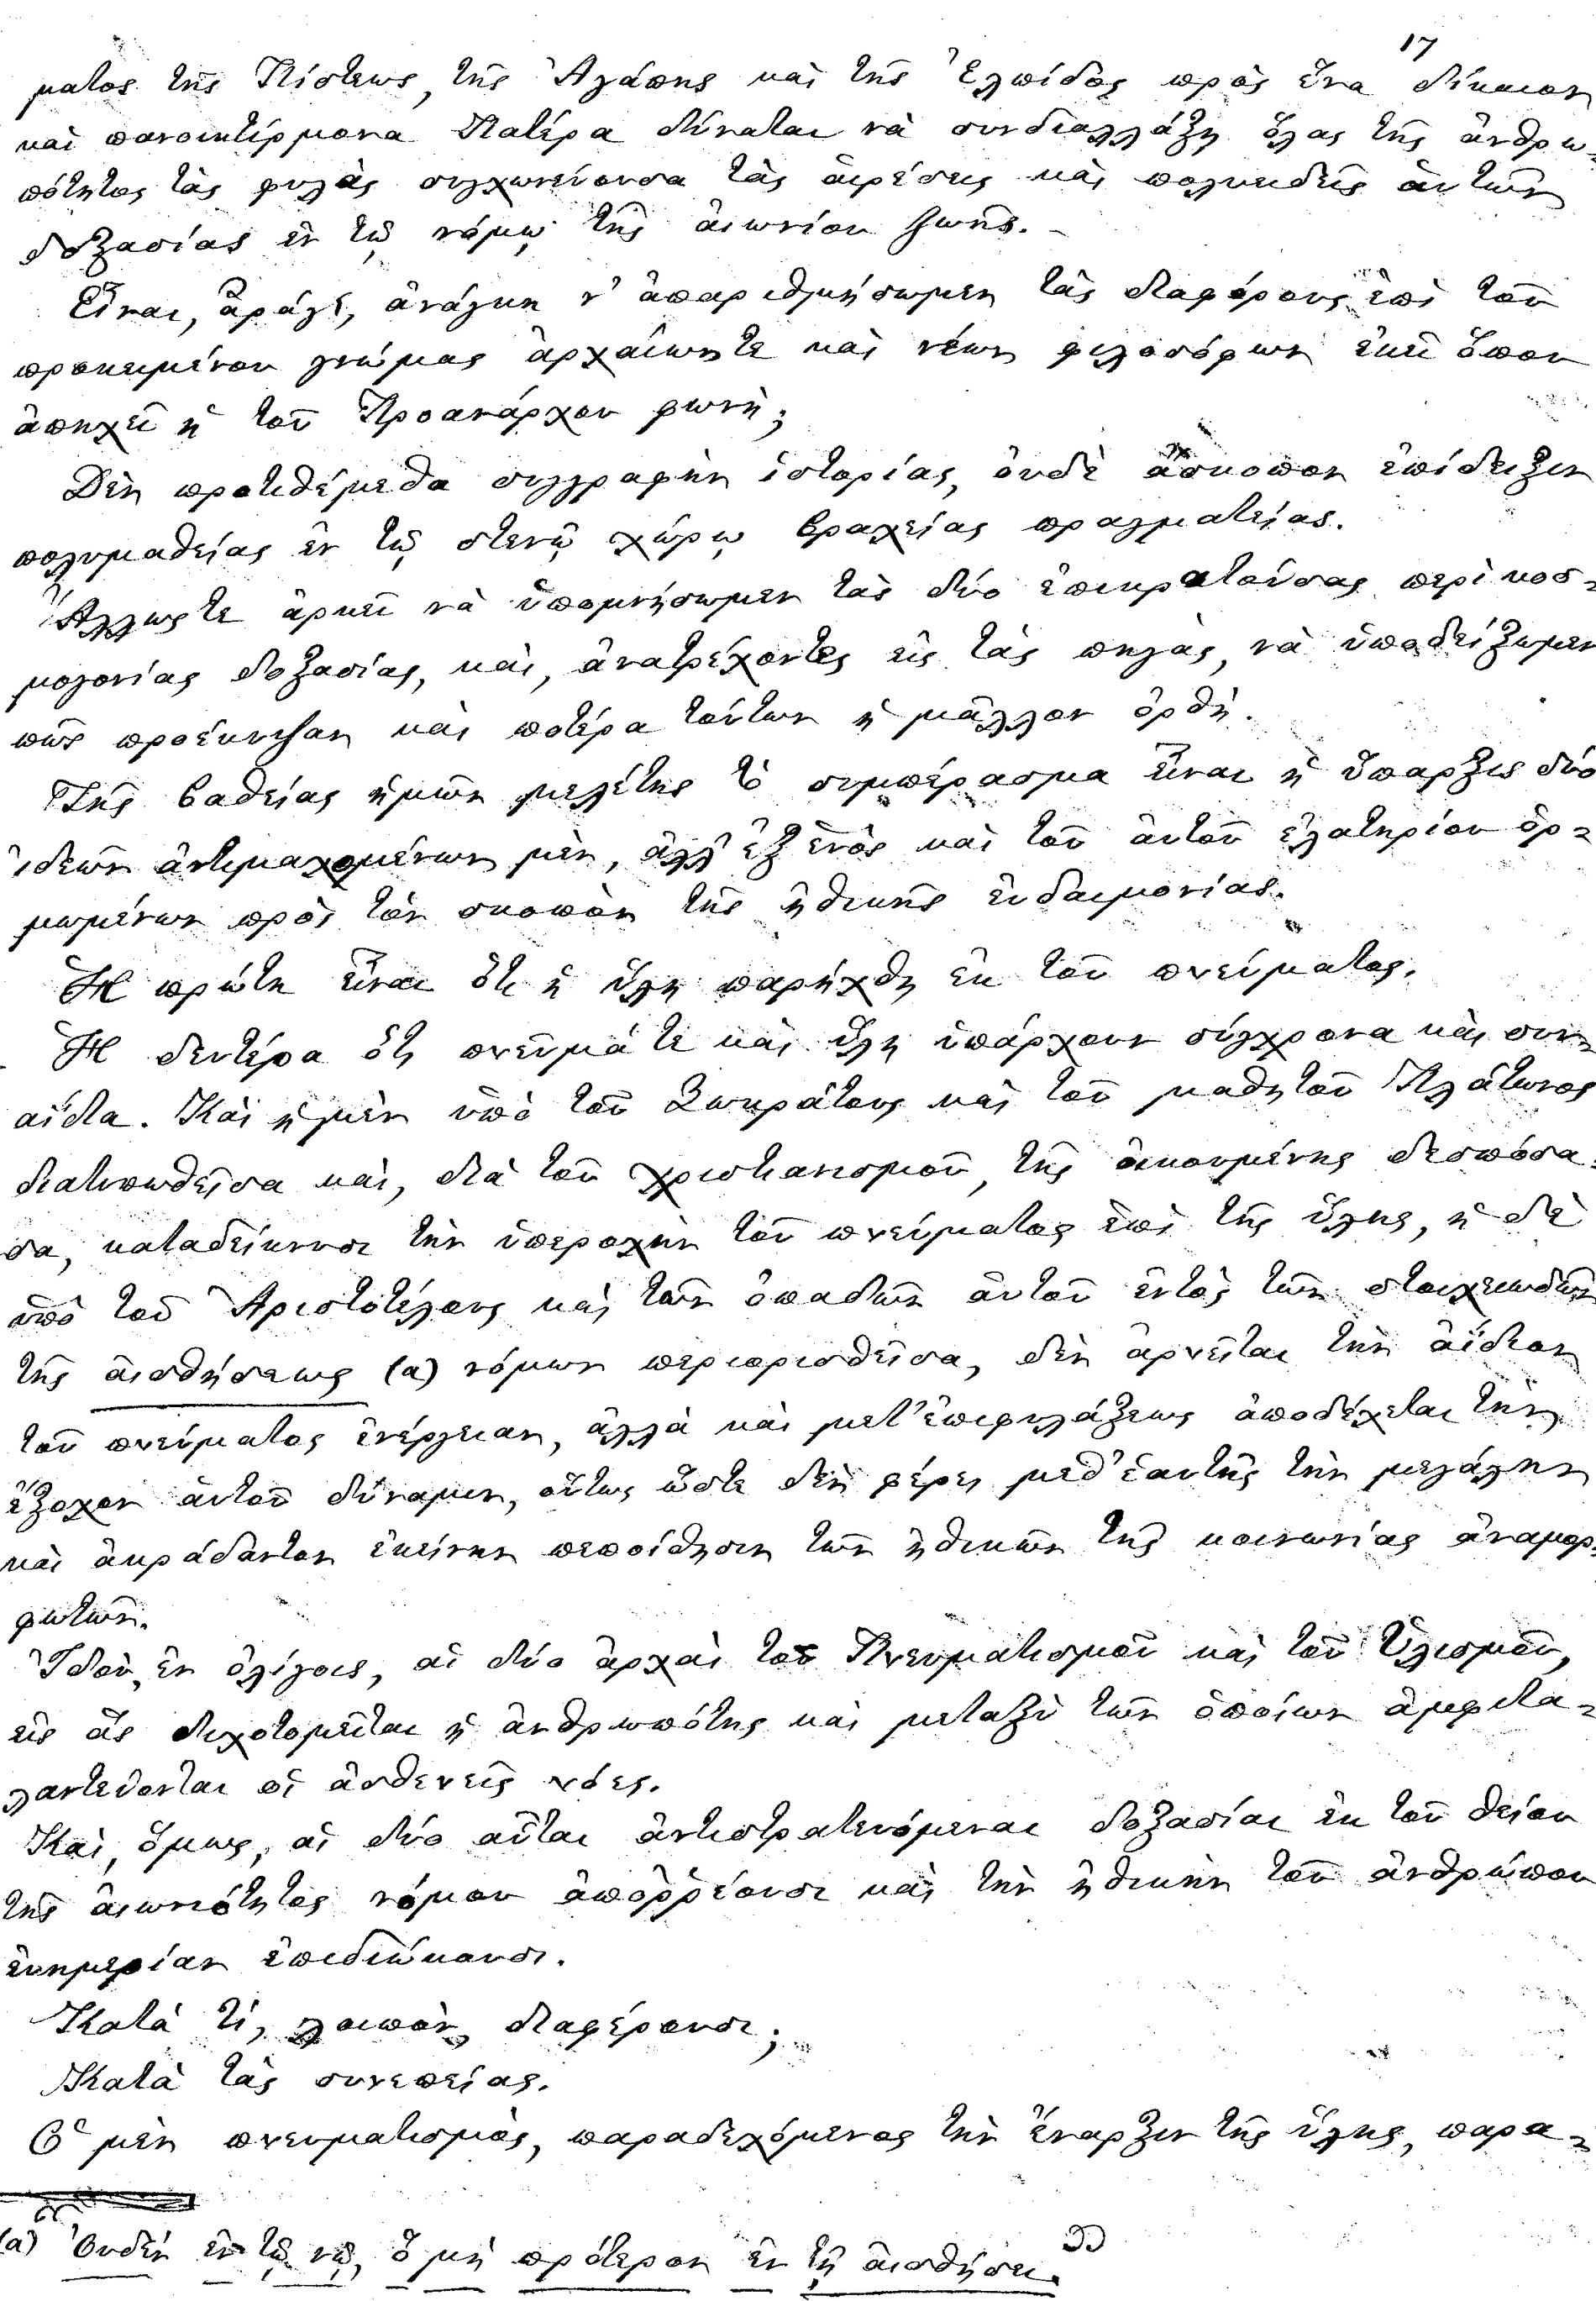 17
ματος τῆς Πίστεως, τῆς Ἀγάπης καὶ τῆς Ἐλπίδος πρὸς ἕνα δίκαιον
καὶ πανοικτίρμονα Πατέρα δύναται νὰ συνδιαλλάξῃ ὅλας τῆς ἀνθρω-
πότητος τὰς φυλὰς συγχωνεύουσα τὰς αἱρέσεις καὶ πολυειδεῖς αὐτῶν
δοξασίας ἐν τῷ νόμῳ τῆς αἰωνίου ζωῆς. -
Εἶναι, ἆράγε, ἀνάγκη ν' ἀπαριθμήσωμεν τὰς διαφόρους ἐπὶ τοῦ
προκειμένου γνώμας ἀρχαίων τε καὶ νέων φιλοσόφων ἐκεῖ ὅπου
ἀπηχεῖ ἡ τοῦ Προανάρχου φωνή;
Δὲν προτιθέμεθα συγγραφὴν ἱστορίας, οὐδὲ ἄσκοπον ἐπίδειξιν
πολυμαθείας ἐν τῷ στενῷ χώρῳ βραχείας πραγματείας.
Ἄλλωςτε ἀρκεῖ νὰ ὑπομνήσωμεν τὰς δύο ἐπικρατούσας περὶ κοσ-
μογονίας δοξασίας, καὶ, ἀνατρέχοντες εἰς τὰς πηγὰς, νὰ ὑποδείξωμεν
πῶς προέκυψαν καὶ ποτέρα τούτων ἡ μᾶλλον ὀρθή.
Τῆς βαθείας ἡμῶν μελέτης τὸ συμπέρασμα εἶναι ἡ ὕπαρξις δύο
ἰδεῶν ἀντιμαχομένων μὲν, ἀλλ' ἐξ ἑνὸς καὶ τοῦ αὐτοῦ ἐλατηρίου ὁρ-
μωμένων πρὸς τὸν σκοπὸν τῆς ἠθικῆς εὐδαιμονίας.
Ἡ πρώτη εἶναι ὅτι ἡ ὕλη παρήχθη ἐκ τοῦ πνεύματος.
Ἡ δευτέρα ὅτι πνεῦμά τε καὶ ὕλη ὑπάρχουν σύγχρονα καὶ συν-
αΐδια. Καὶ ἡ μὲν ὑπὸ τοῦ Σωκράτους καὶ τοῦ μαθητοῦ Πλάτωνος
διατυπωθεῖσα καὶ, διὰ τοῦ χριστιανισμοῦ, τῆς οἰκουμένης δεσπόσα-
σα, καταδείκνυσι τὴν ὑπεροχὴν τοῦ πνεύματος ἐπὶ τῆς ὕλης, ἡ δὲ
ὑπὸ τοῦ Ἀριστοτέλους καὶ τῶν ὀπαδῶν αὐτοῦ ἐντὸς τῶν στοιχειωδῶν
τῆς αἰσθήσεως (α) νόμων περιορισθεῖσα, δὲν ἀρνεῖται τὴν ἀΐδιον
τοῦ πνεύματος ἐνέργειαν, ἀλλὰ καὶ μετ' ἐπιφυλάξεως ἀποδέχεται τὴν
ἔξοχον αὐτοῦ δύναμιν, οὕτως ὥστε δὲν φέρει μεθ' ἑαυτῆς τὴν μεγάλην
καὶ ἀκράδαντον ἐκείνην πεποίθησιν τῶν ἠθικῶν τῆς κοινωνίας ἀναμορ-
φωτῶν.
Ἰδοὺ, ἐν ὀλίγοις, αἱ δύο ἀρχαὶ τοῦ Πνευματισμοῦ καὶ τοῦ Ὑλισμοῦ,
εἰς ἃς διχοτομεῖται ἡ ἀνθρωπότης καὶ μεταξὺ τῶν ὁποίων ἀμφιτα-
λαντεύονται οἱ ἀσθενεῖς νόες.
Καὶ, ὅμως, αἱ δύο αὗται ἀντιστρατευόμεναι δοξασίαι ἐκ τοῦ θείου
τῆς αἰωνιότητος νόμου ἀποῤῥέουσι καὶ τὴν ἠθικὴν τοῦ ἀνθρώπου
εὐημερίαν ἐπιδιώκουσι.
Κατὰ τί, λοιπὸν, διαφέρουσι;
Κατὰ τὰς συνεπείας.
Ὁ μὲν πνευματισμὸς, παραδεχόμενος τὴν ἔναρξιν τῆς ὕλης, παρα-
(α) Οὐδὲν ἐν τῷ νῷ, ὃ μὴ πρότερον ἐν τῇ αἰσθήσει.